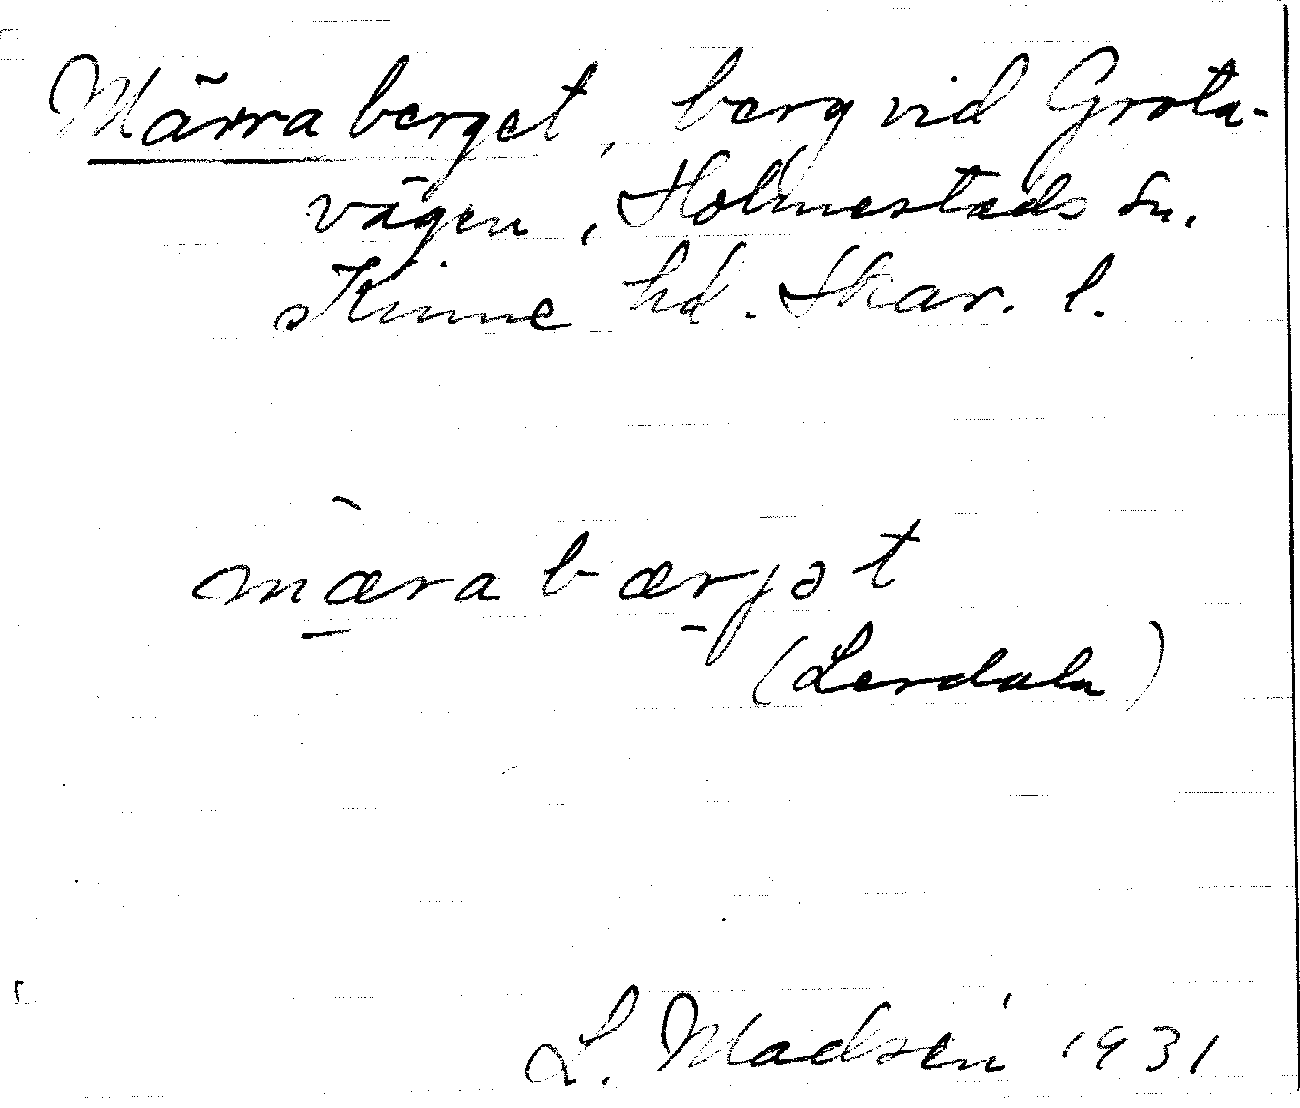 Märraberget, berg vid Grota-
vägen, Holmestads sn.
Kinne hd. Skar. l.
mæ̀rabærjət
(Lerdala)
L. Madsén 1931